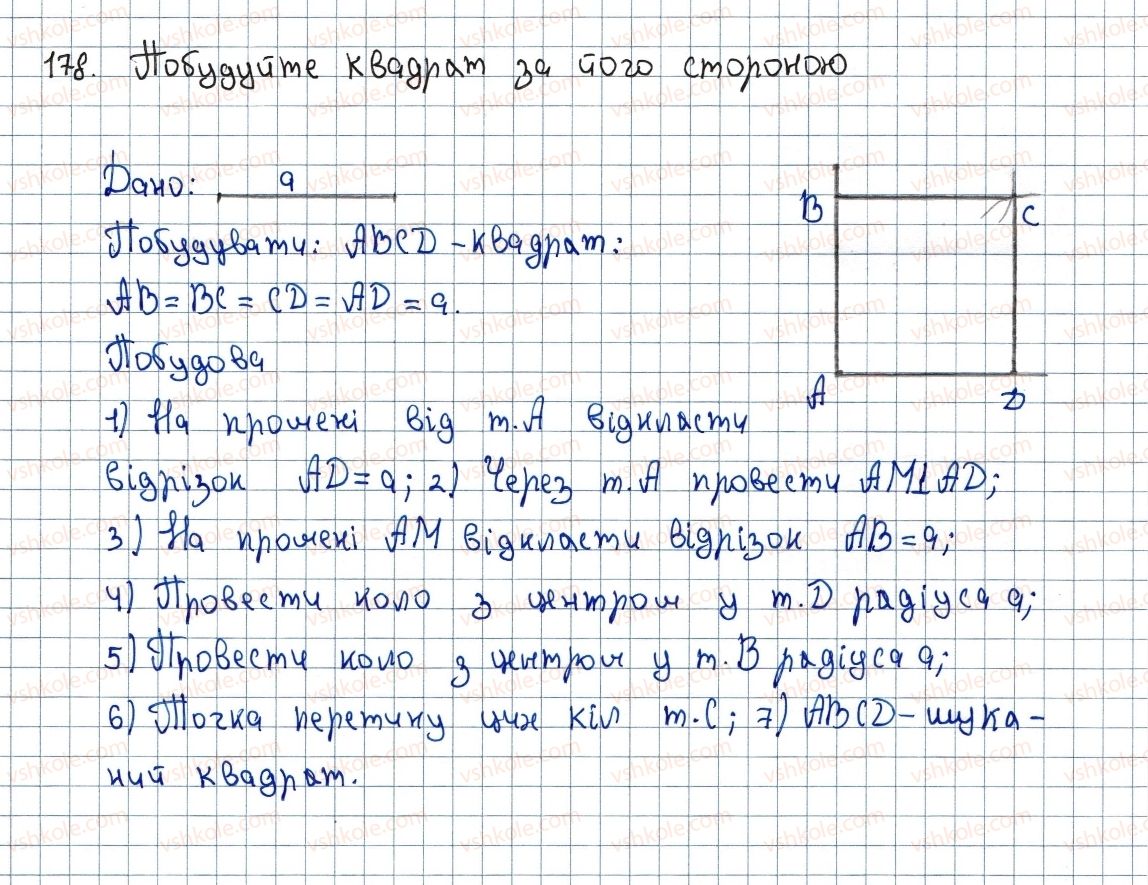 178. Побудуйте квадрат за його стороною
Дано: a
Побудувати: ABCD - квадрат:
AB = BC = CD = AD = a.
Побудова
1) На промені від т.А відкласти
відрізок AD = a; 2) Через т.А провести AM⊥AD;
3) На промені AM відкласти відрізок AB = a;
4) Провести коло з центром у т.D радіуса a;
5) Провести коло з центром у т.B радіуса a;
6) Точка перетину цих кіл т.С; 7) ABCD - шука-
ний квадрат.
B
C
A
D